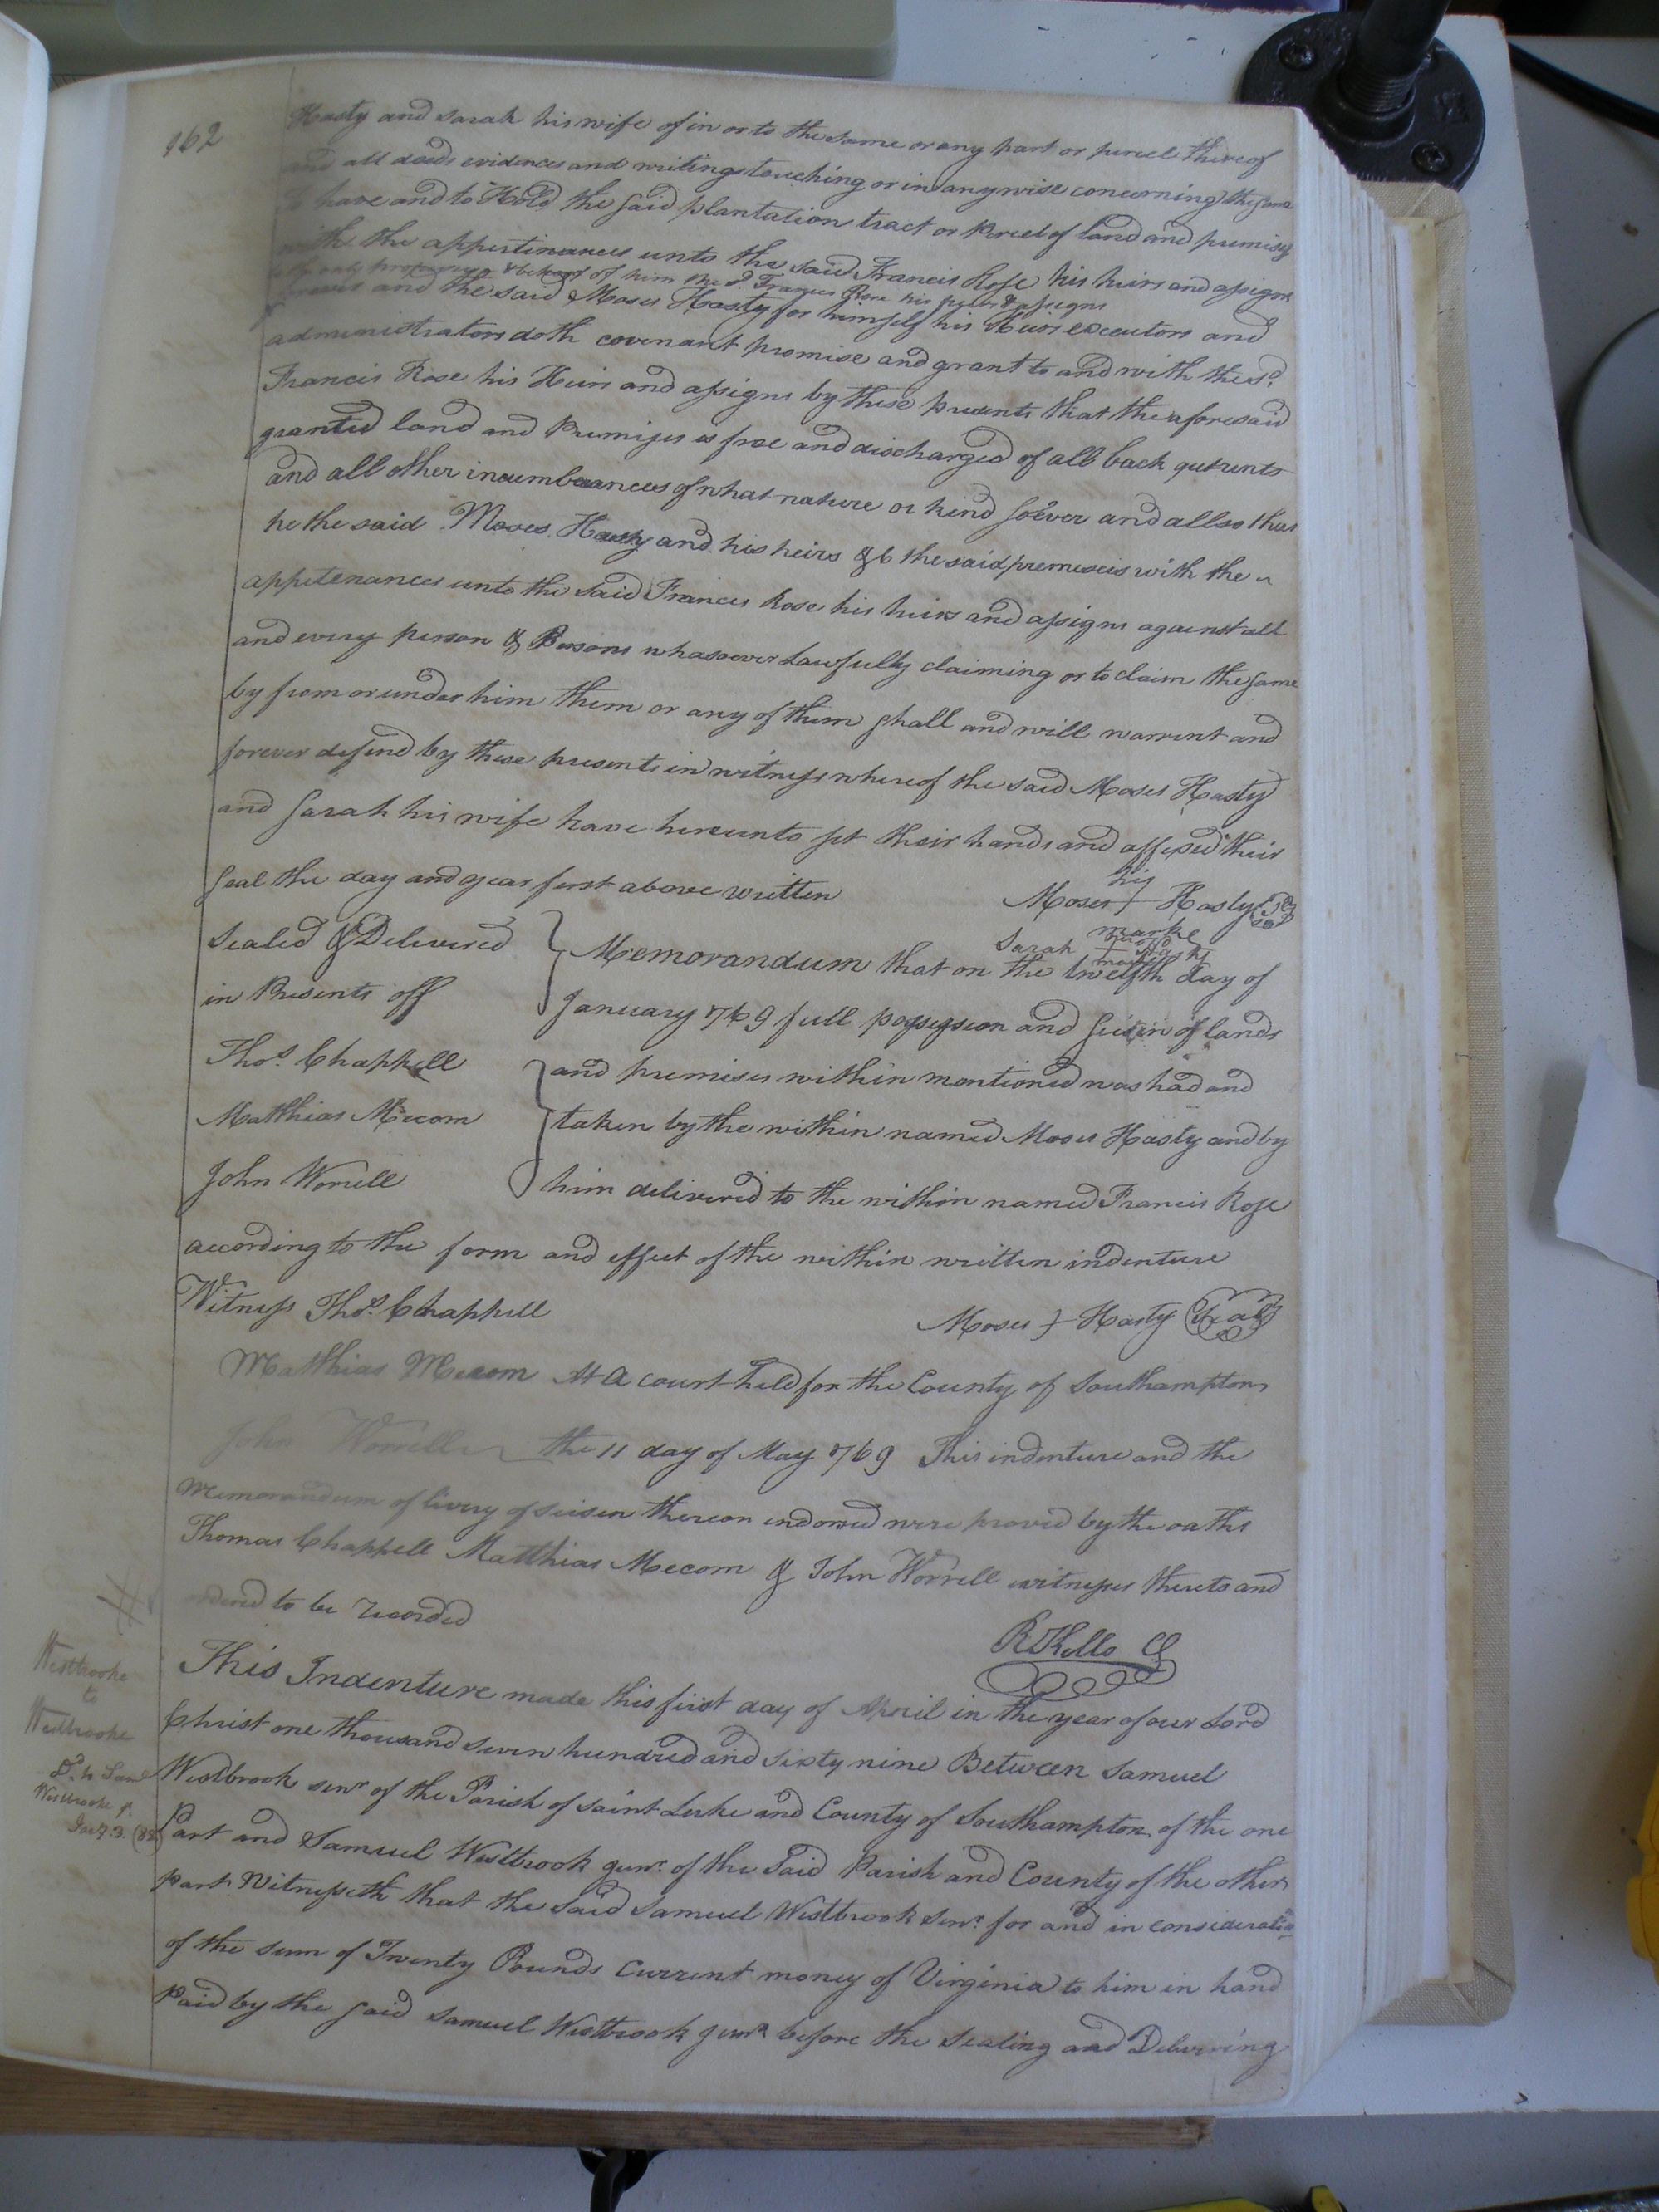 162
Hasty and Sarah his wife of in or to the same or any part or percel thereof
and all deeds evidences and writings touching or in anywise concerning the same
To have and to Hold the said plantation tract or Percel of land and premises
with the appertinances unto the said Francis Rose his heirs and assigns
to the only proper use & behoof of him the sd. Francis Rose his heirs & assigns
forever and the said Moses Hasty for himself his Heirs executors and
administrators doth covenant promise and grant to and with the sd.
Francis Rose his Heirs and assigns by these presents that the aforesaid
granted land and Premises is free and discharged of all back quitrents
and all other incumberances of what nature or kind soever and allso that
he the said Moses Hasty and his heirs & the said premeses with the
appetenances unto the said Francis Rose his heirs and assigns against all
and every person & Persons whasoever Lawfully claiming or to claim the same
by from or under him them or any of them shall and will warrent and
forever defend by these presents in witness whereof the said Moses Hasty
and Sarah his wife have hereunto set their hands and affixed their
Seal the day and year first above written
his
Moses + Hasty
marke
Sarah + Hasty
mark
Sealed & Delivered
in Presents off
Thos. Chappell
Matthias Mecom
John Worrell
Memorandum that on the twelfth day of
January 1769 full possession and Seisin of lands
and premises within mentioned was had and
taken by the within named Moses Hasty and by
him delivered to the within named Francis Rose
according to the form and effect of the within written indenture
Witness Thos. Chappell
Moses + Hasty Seal
Matthias Mecom At a court held for the County of Southampton
John Worrell the 11 day of May 1769 This indenture and the
Memorandum of livery of seisen thereon endorsed were proved by the oaths
Thomas Chappell Matthias Mecom & John Worrell witnesses thereto and
ordered to be recorded
R Kello Cl
Westbrooke
to
Westbrooke
This Indenture made this first day of April in the year of our Lord
Christ one thousand seven hundred and sixty nine Between Samuel
Westbrook senr of the Parish of saint Luke and County of Southampton of the one
Part and Samuel Westbrook junr. of the said Parish and County of the other
part Witnesseth that the said Samuel Westbrook senr. for and in consideration
of the sum of Twenty Pounds Current money of Virginia to him in hand
Paid by the said Samuel Westbrook junr before the Sealing and Delivering